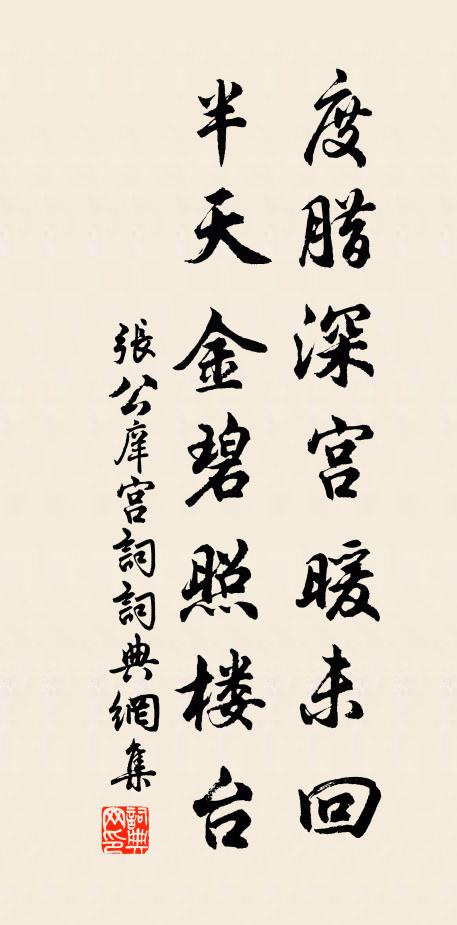 度腊深宫暖未回
半天金碧照楼台
張公庠宫詞詞典網集
詞典
网印